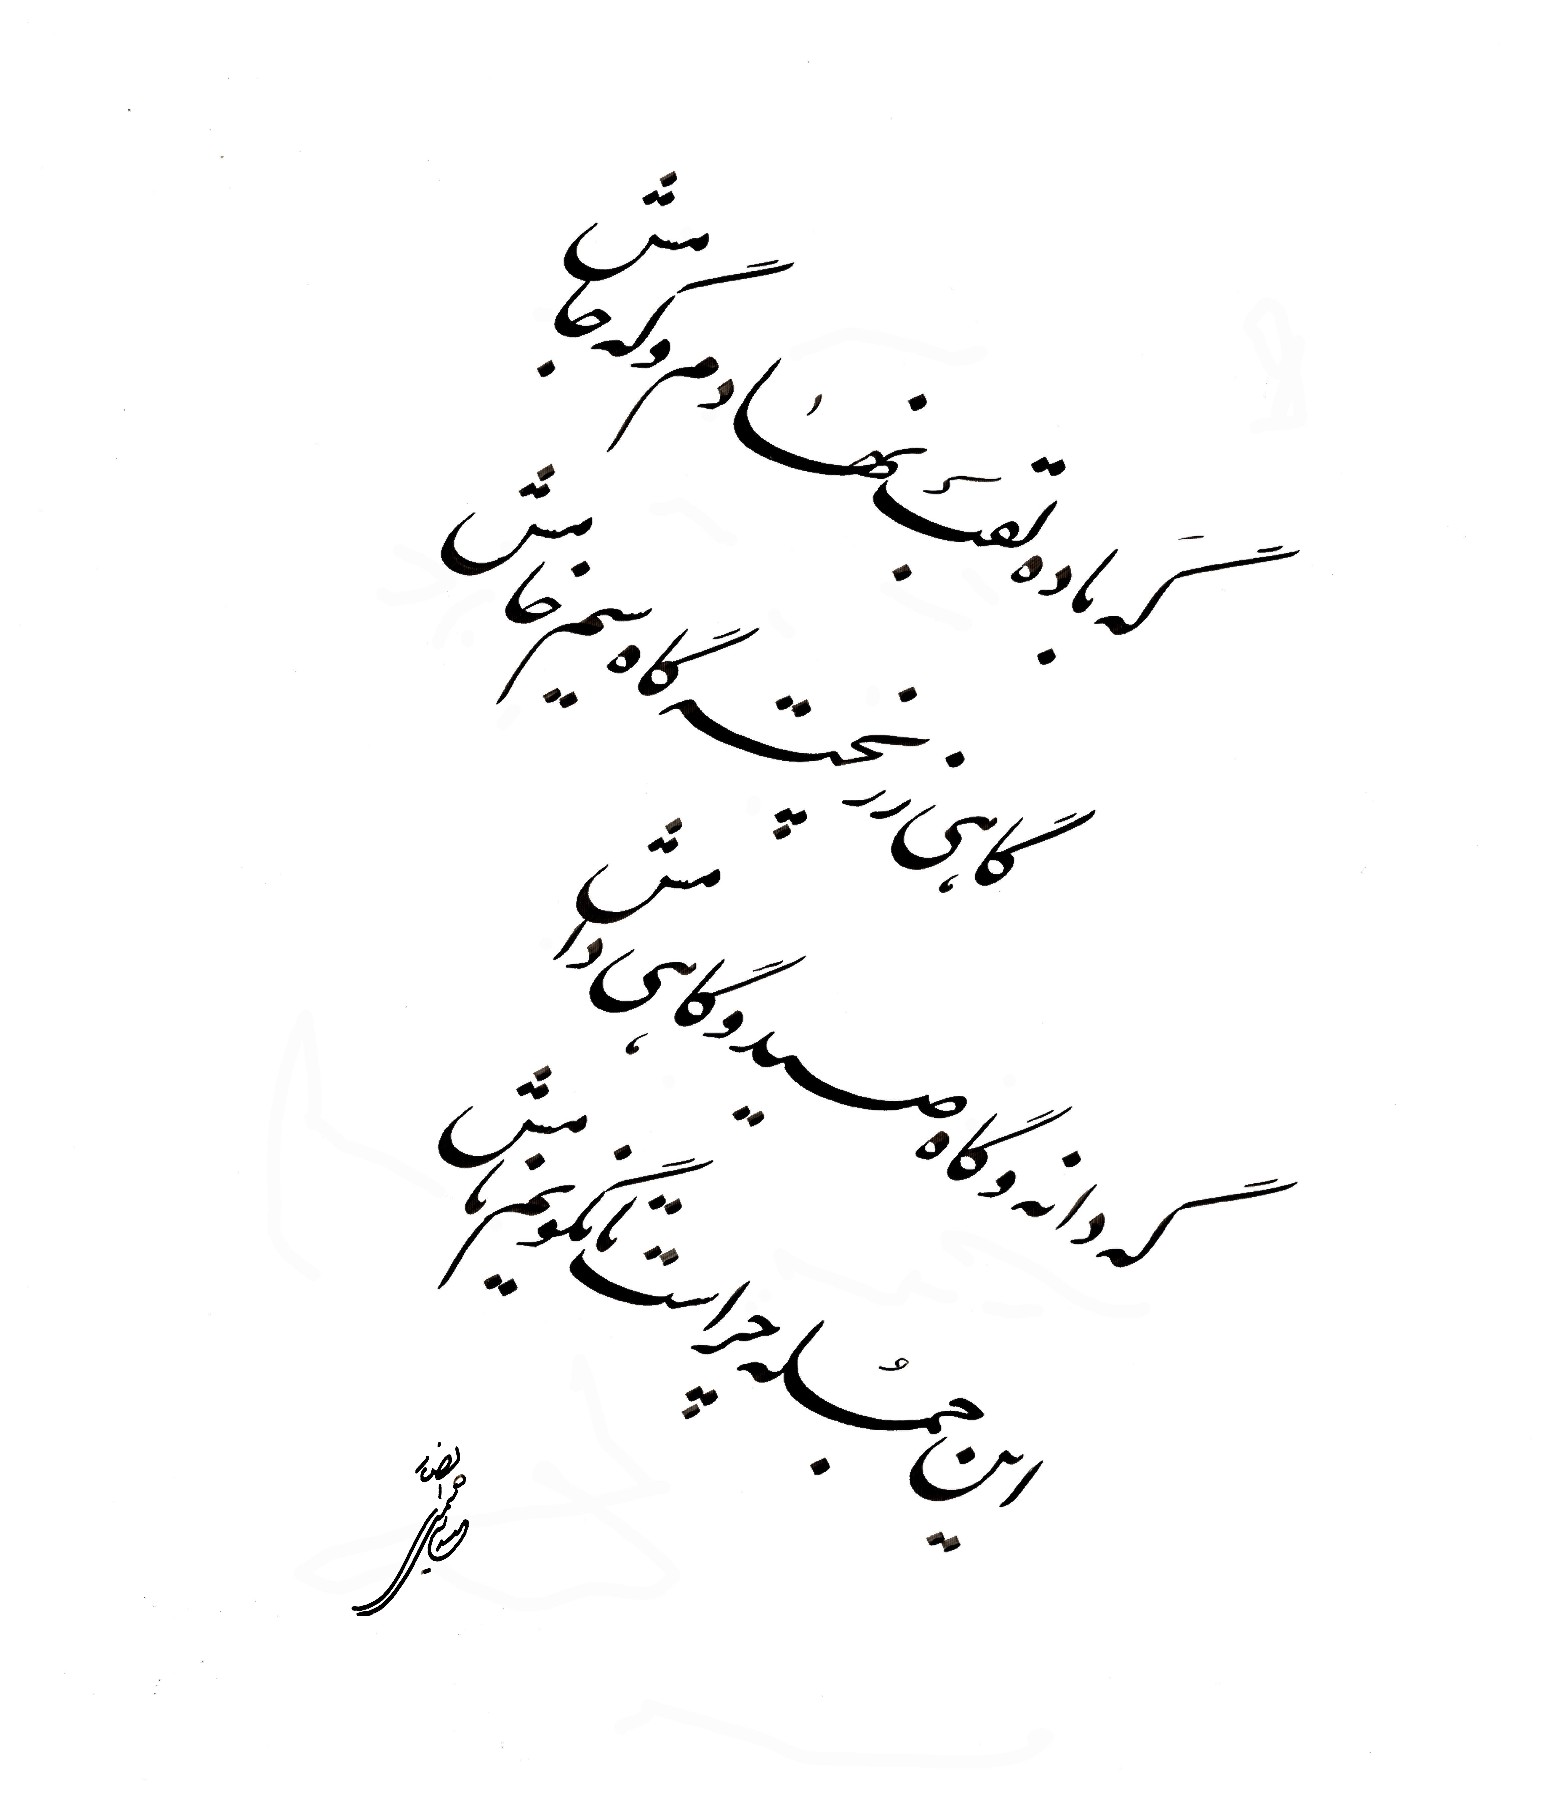 گه باده لقب نهادم و گه جامش
گاهی زر پخته گاه سیم خامش
گه دانه و گاه صید و گاهی دامش
این جمله چراست تا نگویم نامش